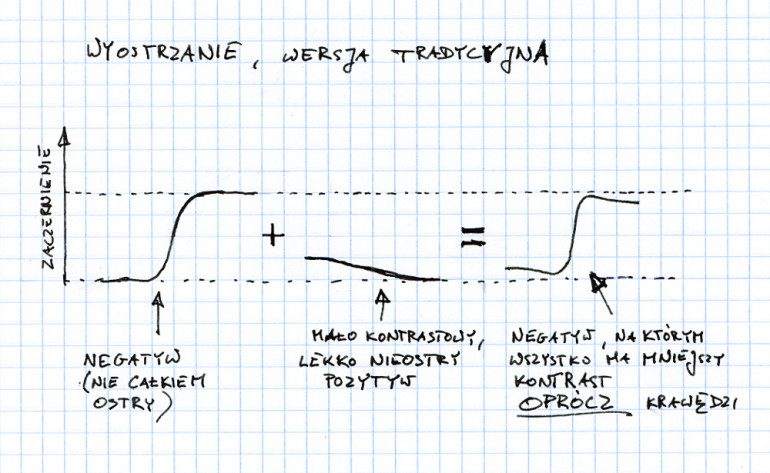 WYOSTRZANIE, WERSJA TRADYCYJNA
ZACZERNIENIE
+
=
NEGATYW
(NIE CAŁKIEM
OSTRY)
MAŁO KONTRASTOWY,
LEKKO NIEOSTRY
POZYTYW
NEGATYW, NA KTÓRYM
WSZYSTKO MA MNIEJSZY
KONTRAST
OPRÓCZ KRAWĘDZI